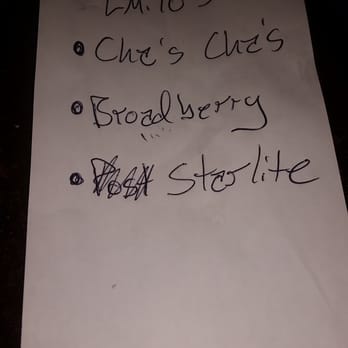 • Cha's Cha's
• Broadberry
• Starlite